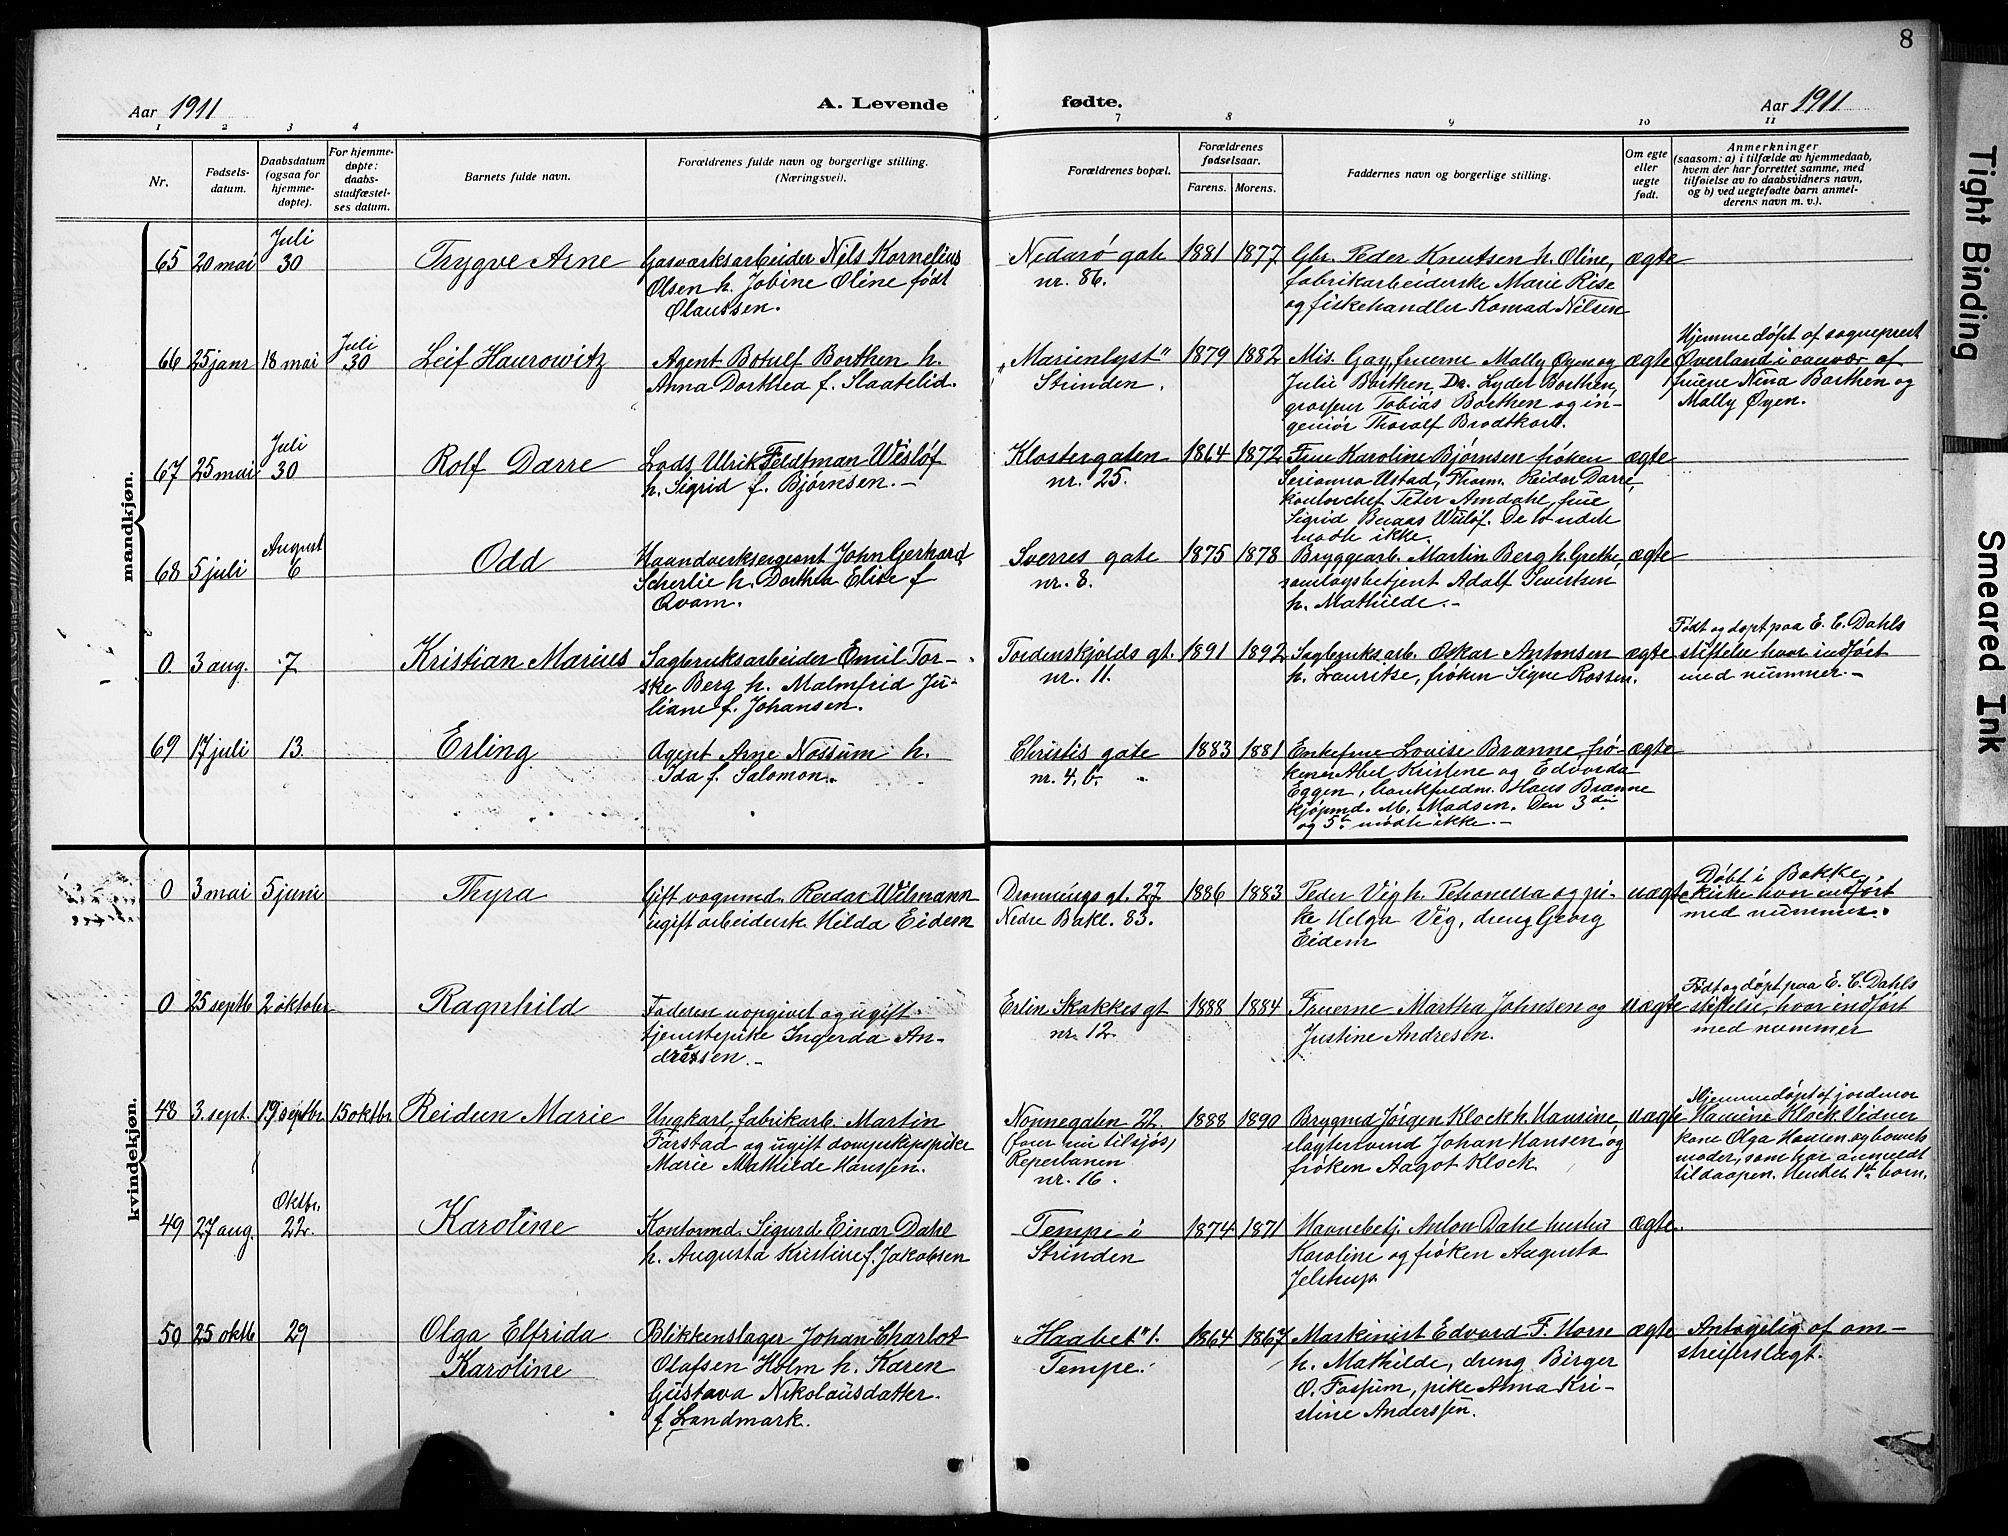 8
Aar 1911
A. Levende
fødte.
Aar 1911
1 2 3 4 7 8 9 10 11
Nr.
Fødsels-
datum.
Daabsdatum
(ogsaa for
hjemme-
døpte).
For hjemme-
døpte:
daabs-
stadfæstel-
ses datum.
Barnets fulde navn.
Forældrenes fulde navn og borgerlige stilling.
(Næringsvei).
Forældrenes bopæl.
Forældrenes
fødselsaar.
Farens. Morens.
Faddernes navn og borgerlige stilling.
Om egte
eller
uegte
født.
Anmerkninger
(saasom: a) i tilfælde av hjemmedaab,
hvem der har forrettet samme, med
tilføielse av to daabsvidners navn,
og b) ved uegtefødte barn anmel-
derens navn m. v.).
mandkjøn.
65 20 mai Juli
30
Trygve Arne
Gasværksarbeider Nils Kornelius
Olsen h. Jobine Oline født
Olaussen.
Nedarø gate
nr. 86.
1881 1877
Gbr. Peder Knutsen h. Oline,
fabrikarbeiderske Marie Rise
og fiskehandler Konrad Nilsen
ægte
66 25 janr 18 mai Juli
30
Leif Haurowitz
Agent Botulf Borthen h.
Anna Dorthea f. Slaatelid.
"Marienlyst"
Strinden.
1879 1882
Mis. Gay, fruerne Mally Øyen og
Julie Borthen, Dr. Lyder Borthen,
grosserer Tobias Borthen og in-
geniør Thoralf Brodtkorb.
ægte
Hjemmedøpt af sogneprest
Øverland i nærvær af
fruene Nina Borthen og
Mally Øyen.
67 25 mai Juli
30
Rolf Darre
Lods Ulrik Feldtman Wisløf
h. Sigrid f. Bjørnsen.-
Klostergaten
nr. 25.
1864 1872
Frue Karoline Bjørnsen frøken
Serianna Ustad, Thorm. Reidar Darre,
kontorchef Peter Amdahl, frue
Sigrid Buaas Wisløf. De to sidste
mødte ikke.
ægte
68 5 juli August
6
Odd
Haandverksersergeant John Gerhard
Scherlie h. Dorthea Elise f
Qvam.
Sverres gate
nr. 8.
1875 1878
Bryggearb. Martin Berg h. Grethe,
samlagsbetjent Adolf Sivertsen
h. Mathilde.-
ægte
0. 3 aug. 7
Kristian Marius
Sagbruksarbeider Emil Tor-
ske Berg h. Malmfrid Ju-
liane f. Johansen.
Tordenskjolds gt.
nr. 11.
1891 1892
Sagbruksarb. Oskar Antonsen
h. Lauritse, frøken Signe Rossen.
ægte
Født og døpt paa E. C. Dahls
stiftelse hvor indført
med nummer.-
69 17 juli 13.
Erling
Agent Arne Nossum h.
Ida f. Salomon.
Christis gate
nr. 4, b.
1883 1881
Enkefrue Lovise Brænne, frø-
kener Abel Kristine og Edvarda
Eggen, bankfuldm. Hans Brænne
kjøpmd. M. Madsen. Den 3die
og 5te mødte ikke.-
ægte
kvindekjøn.
0 3 mai 5 juni
Thyra
Gift vognmd. Reidar Wilmann
ugift arbeiderske Hilda Eidem
Dronnings gt. 27.
Nedre Bakl. 83.
1886 1883
Peder Vig h. Petronella og pi-
ke Helga Vig, dreng Georg
Eidem
uægte
Døbt i Bakke
kirke hvor indført
med nummer.
0 25 septb 2 oktober
Ragnhild
Faderen uopgivet og ugift
tjenestepike Ingerda An-
dressen.-
Erlin Skakkes gt
nr. 12.
1888 1884
Fruerne Martha Johnsen og
Justine Andresen.
uægte
Født og døpt paa E. C. Dahls
stiftelse, hvor indført
med nummer
48 3. sept. 19 septbr. 15 oktbr.
Reidun Marie
Ungkarl, fabrikarb. Martin
Farstad og ugift
Marie Mathilde Hanssen.
Nonnegaten 22.
Reperbanen
nr. 16.
1888 1890
Brygmd Jørgen Klock h. Hansine,
slagtersvend Johan Hansen og
frøken Aagot Klock.
uægte
Hjemmedøpt af jordemor
Hansine Klock. Vidner
kone Olga Hansen og barnets
moder, som har anmeldt
til daapen. Hendes 1ste barn.
49 27 aug. Oktbr.
22.
Karoline
Kontormd. Sigurd Einar Dahl
h. Augusta Kristine f. Jakobsen
Tempe i
Strinden
1874 1871
Havnebetj. Anton Dahl hustru
Karoline og frøken Augusta
Jelstrup.
ægte.
50 25 oktb 29
Olga Elfrida
Karoline
Blikkenslager Johan Charlot
Olafsen Holm h. Karen
Gustava Nikolausdatter
f. Landmark.
"Haabet" t.
Tempe.
1864 1867
Maskinist Edvard F. Horn
h. Mathilde, dreng Birger
O. Fossum, pike Anna Kri-
stine Anderssen.
ægte
Antagelig af om-
streiferslægt.
Tight Binding
Smeared Ink